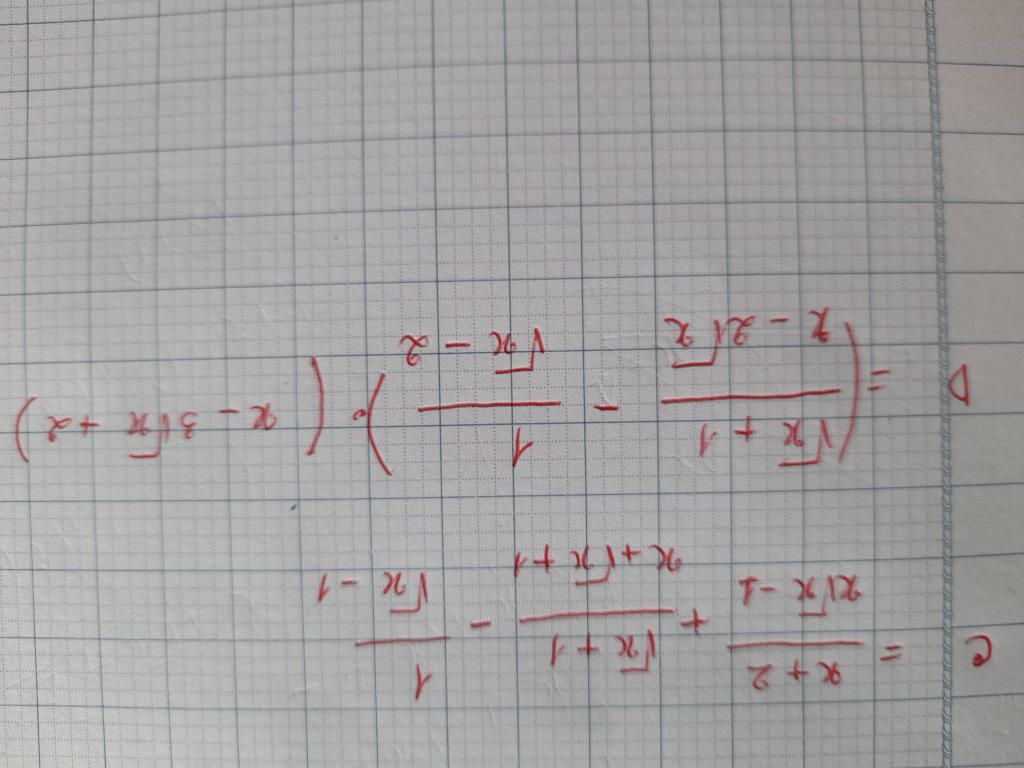 C = \frac{x + 2}{x\sqrt{x} - 1} + \frac{\sqrt{x} + 1}{x + \sqrt{x} + 1} - \frac{1}{\sqrt{x} - 1}
D = \left( \frac{\sqrt{x} + 1}{x - 2\sqrt{x}} - \frac{1}{\sqrt{x} - 2} \right) \cdot (x - 3\sqrt{x} + 2)